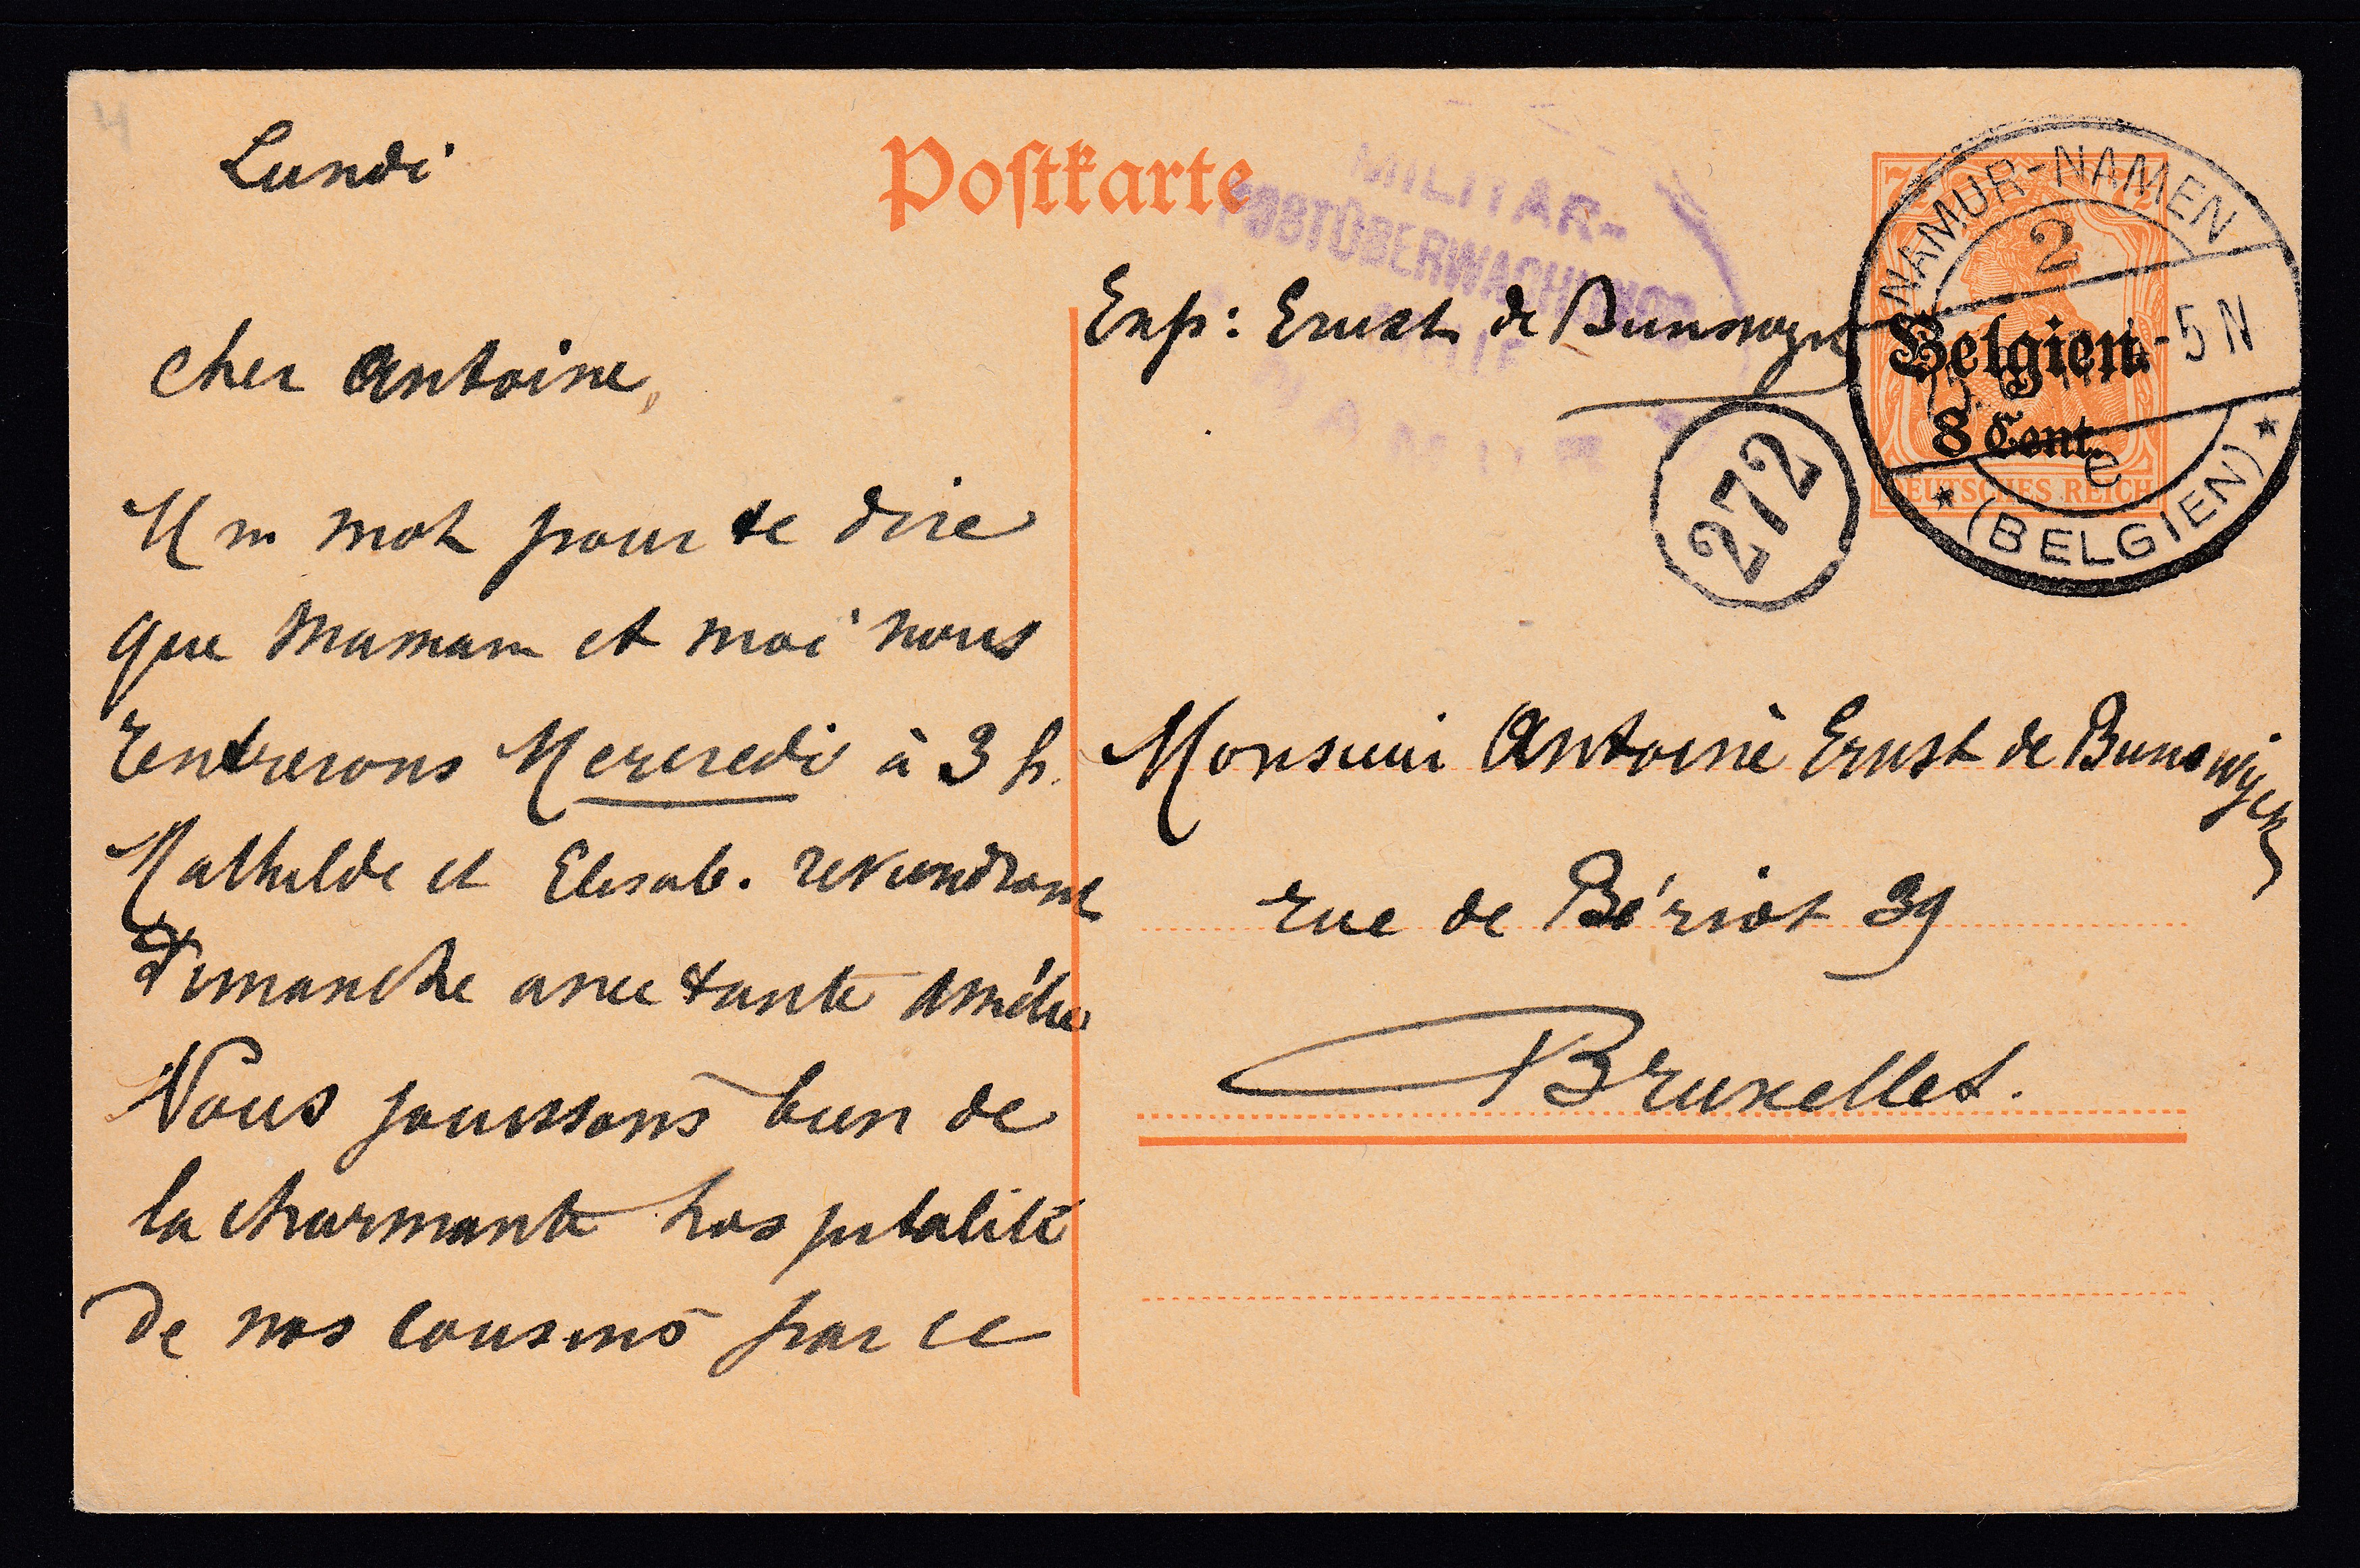 4
Lundi
Cher Antoine,
Un mot pour te dire
que Maman et moi nous
rentrerons Mercredi à 3 h.
Mathilde et Elisab. reviendront
Dimanche avec tante Amélie
Nous jouissons bien de
la charmante hospitalité
de nos cousins par ce
Postkarte
MILITÄR-
POSTÜBERWACHUNGS
STELLE
NAMUR
Exp: Ernst de Bunswyck
272
NAMUR-NAMEN
2
-5 N
e
★ (BELGIEN) ★
7½ 7½
Belgien
8 Cent.
DEUTSCHES REICH
Monsieur Antoine Ernst de Bunswyck
rue de Bériot 39
Bruxelles.